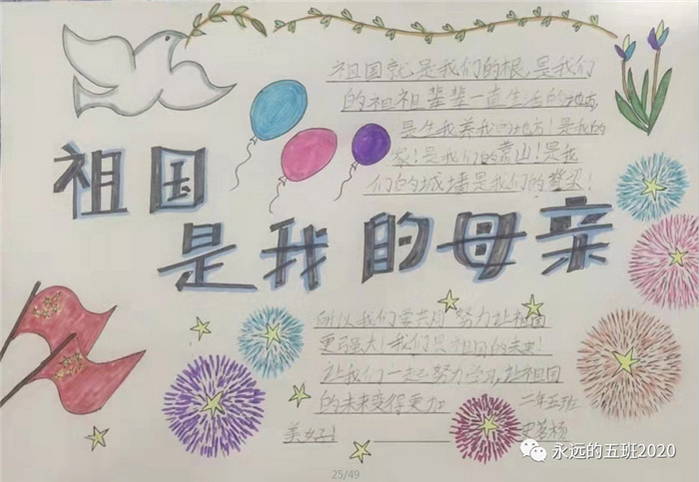 祖国就是我们的根,是我们
的祖祖辈辈一直生活的地方,
是生我养我的地方!是我的
家!是我们的靠山!是我
们的城墙是我们的梦想!
祖国
是我的母亲
所以我们要共同努力让祖国
更强大!我们是祖国的未来!
让我们一起努力学习,让祖国
的未来变得更加
二年五班
美好!
25/49
永远的五班2020